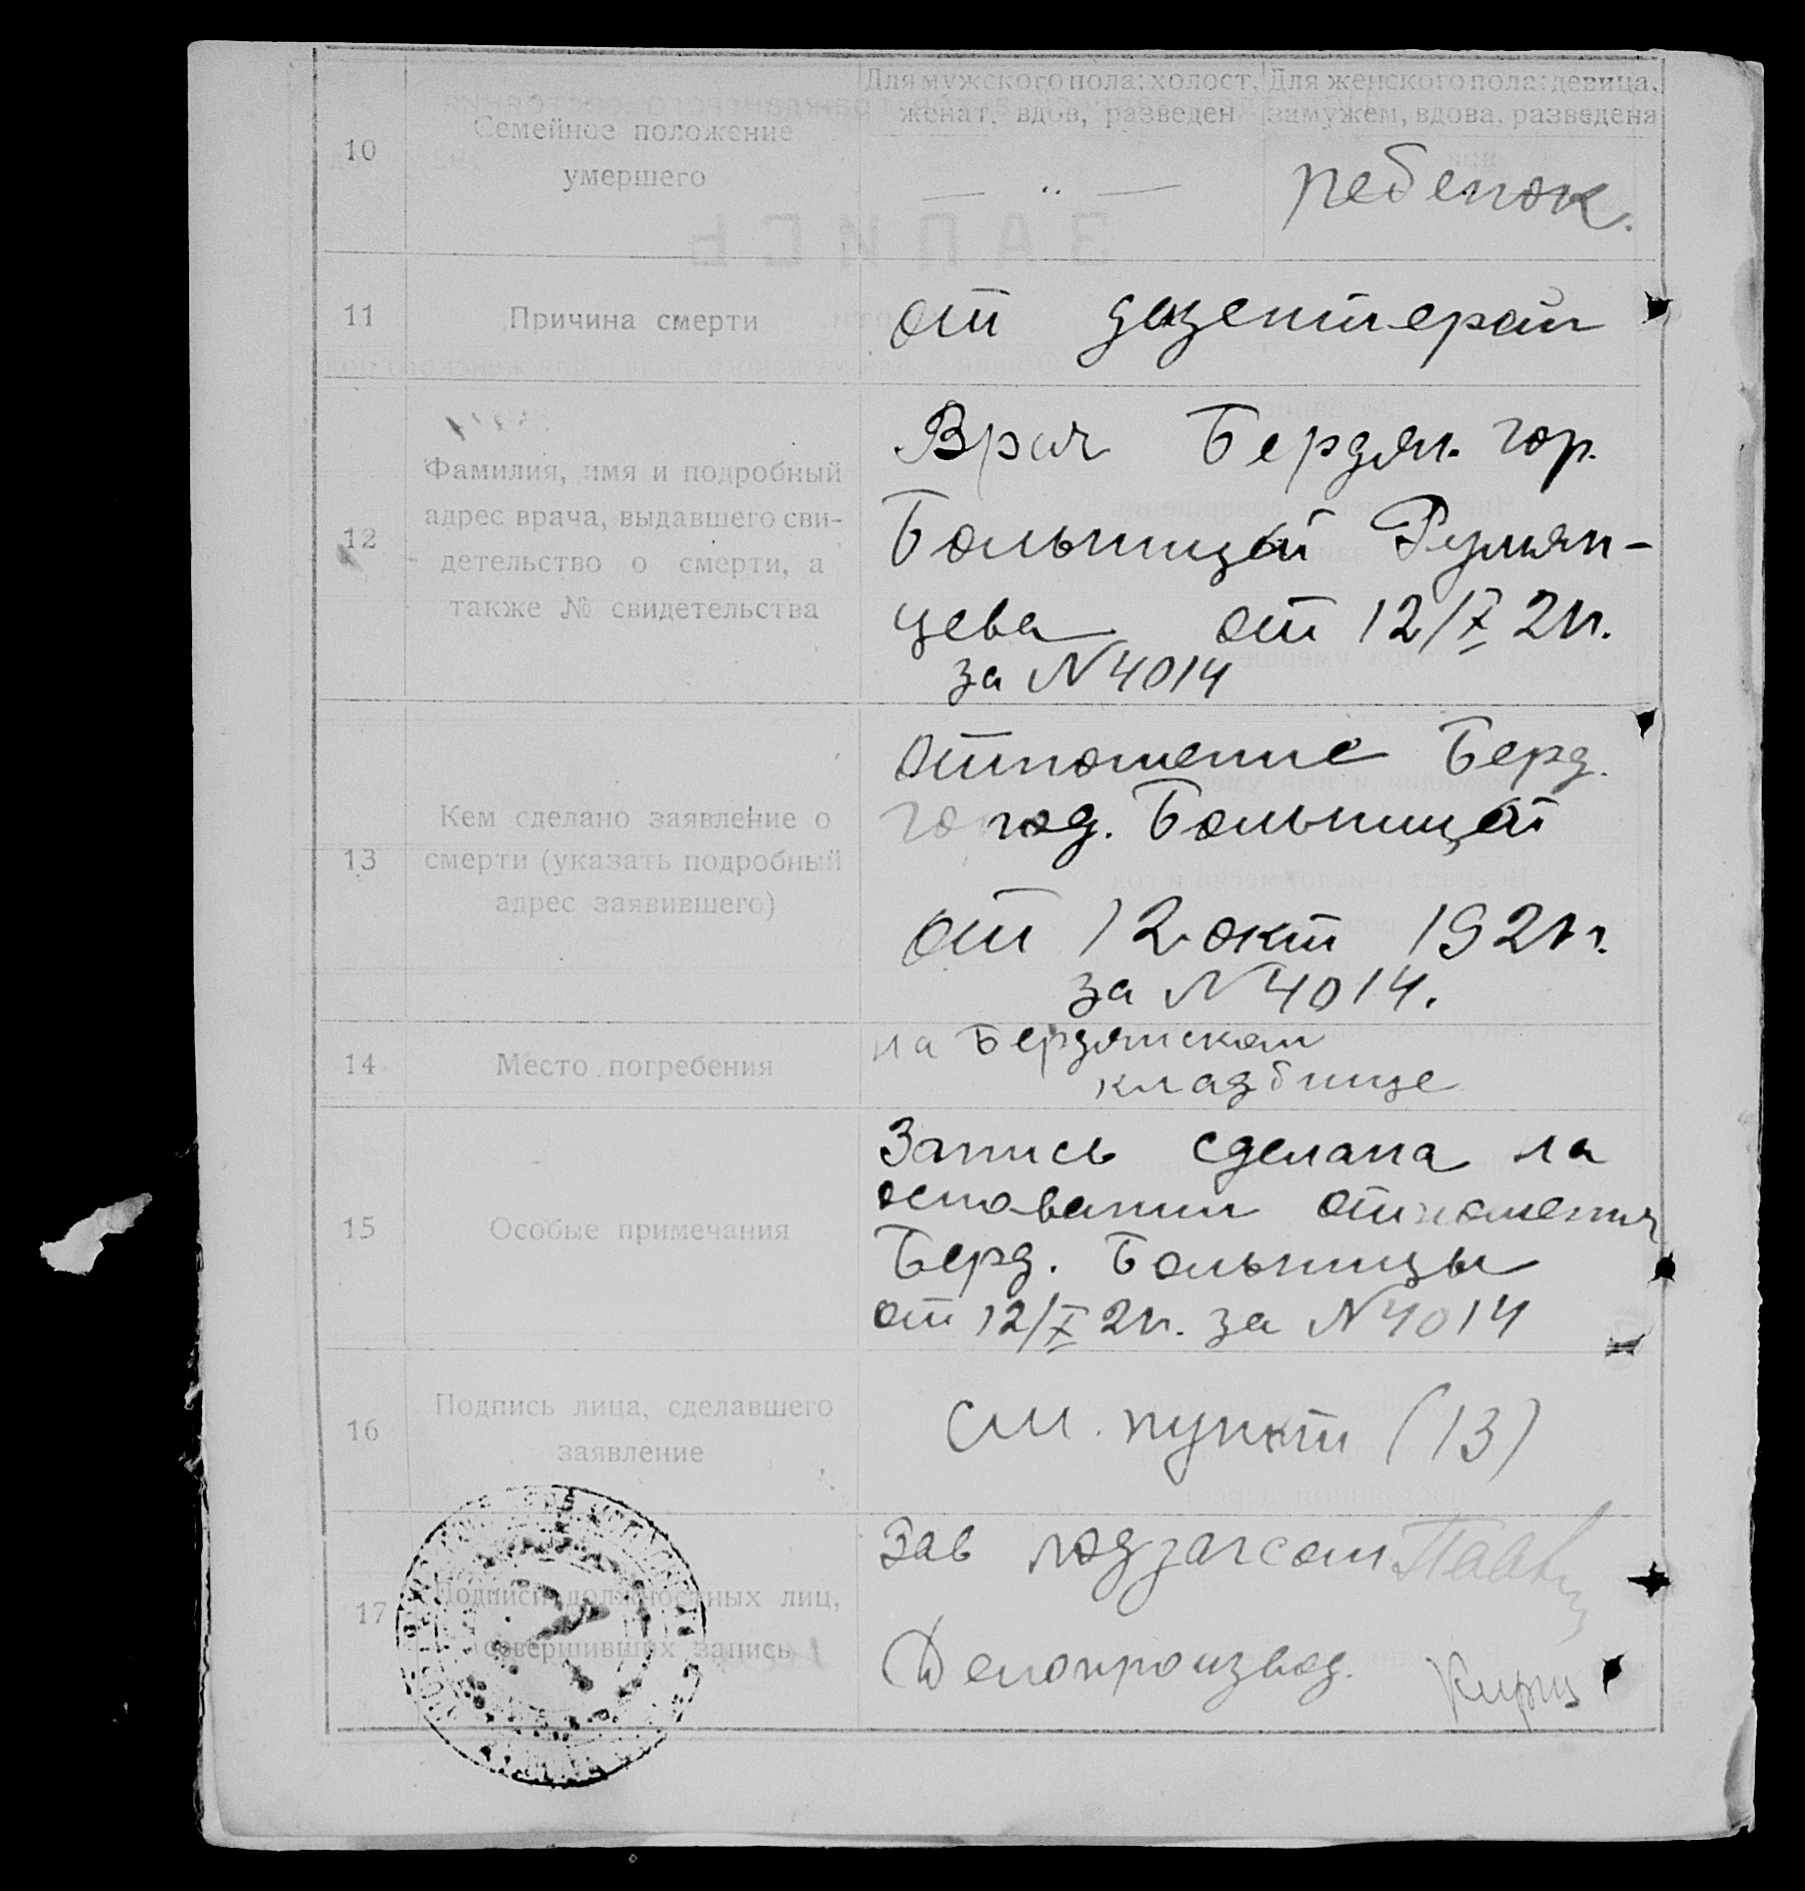 10
Семейное положение
умершего
Для мужского пола: холост,
женат, вдов, разведен
Для женского пола: девица,
замужем, вдова, разведена
— " —
ребенок.
11
Причина смерти
от дизентерей
12
Фамилия, имя и подробный
адрес врача, выдавшего сви-
детельство о смерти, а
также № свидетельства
Врач Бердян. гор.
Больницей Румян-
цева от 12/X 21г.
за N 4014
13
Кем сделано заявление о
смерти (указать подробный
адрес заявившего)
отношение Берд.
город. Больницей
от 12 окт 1921г.
за N 4014.
14
Место погребения
на Бердянском
кладбище
15
Особые примечания
Запись сделана на
основании отношения
Берд. Больницы
от 12/X 21г. за N 4014
16
Подпись лица, сделавшего
заявление
см. пункт (13)
17
Подписи должностных лиц,
совершивших запись
Зав подзагсом
Делопроизвод.